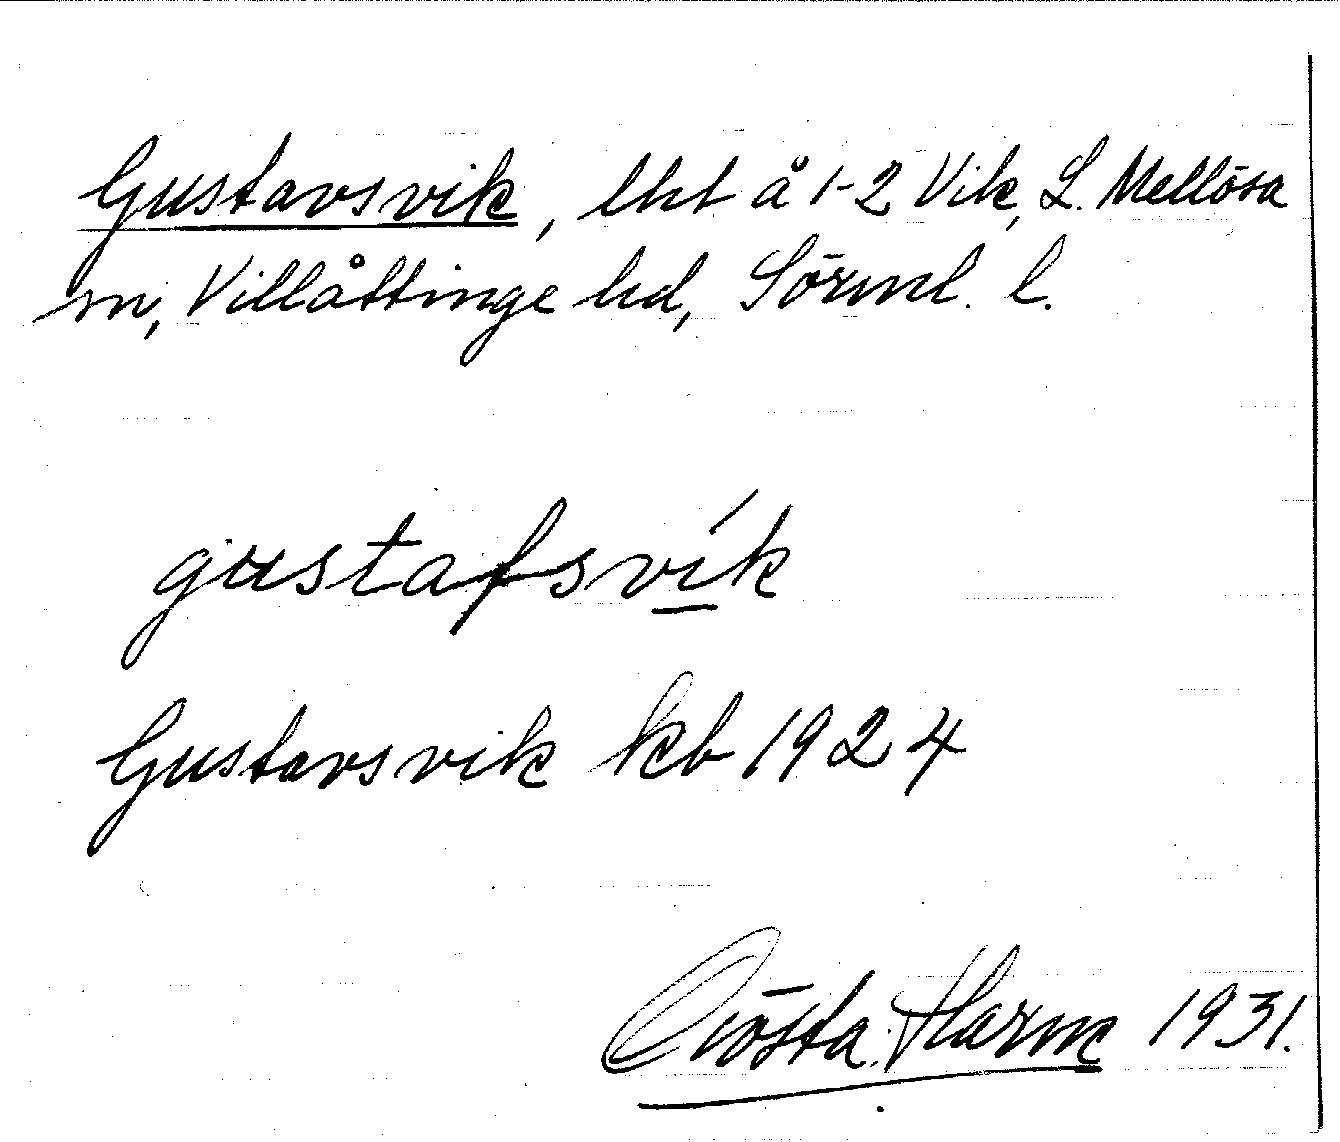 Gustavsvik, lht å 1-2 Vik, L. Mellösa
sn, Villåttinge hd, Sörml. l.
gustafsvík
Gustavsvik kb 1924
Gösta Harm 1931.